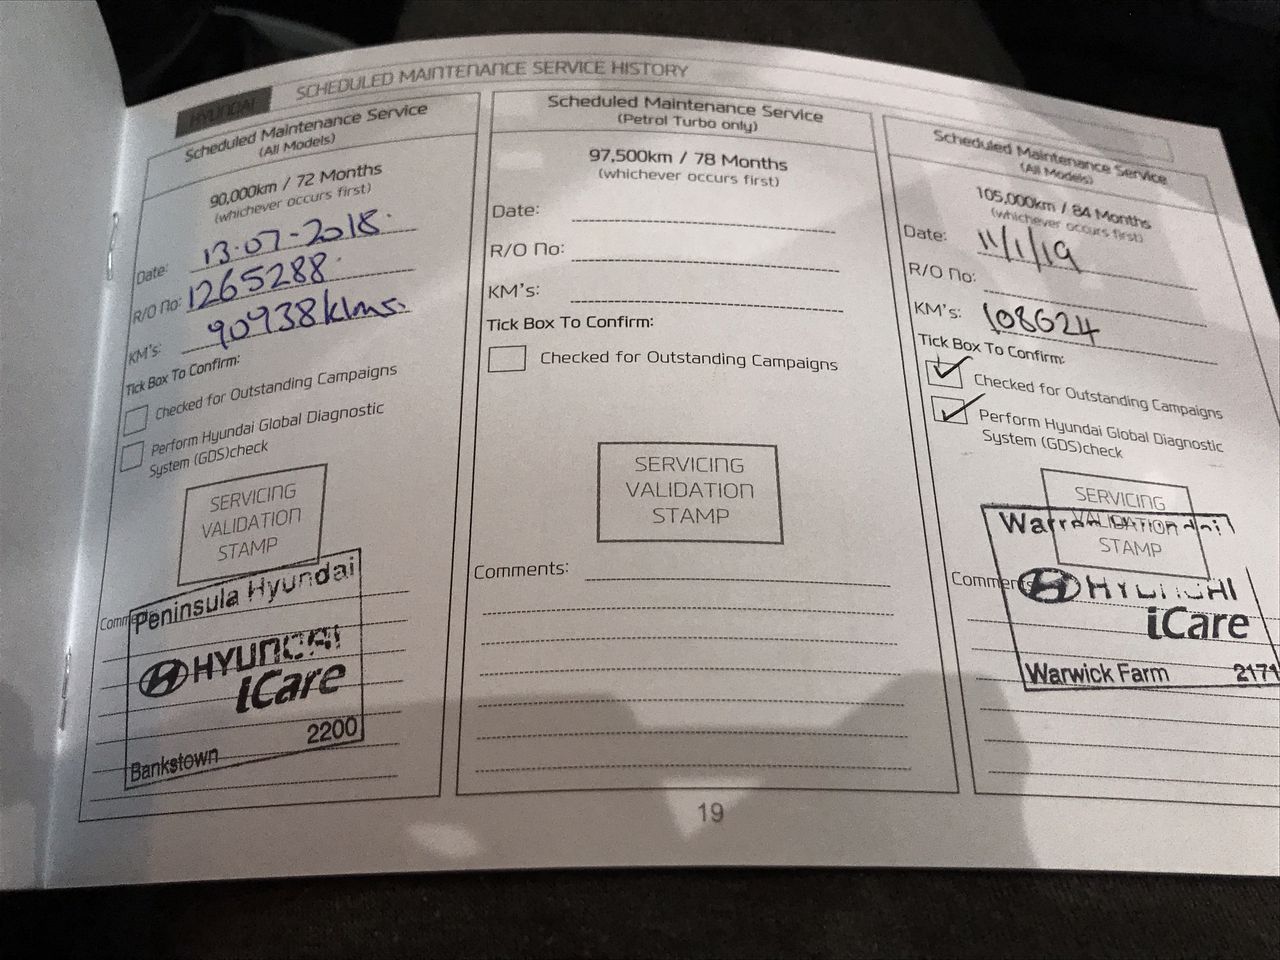 HYUNDAI SCHEDULED MAINTENANCE SERVICE HISTORY
Scheduled Maintenance Service
(All Models)
90,000km / 72 Months
(whichever occurs first)
Date: 13-07-2018.
R/O No: 1265288
KM's: 90938klms.
Tick Box To Confirm:
Checked for Outstanding Campaigns
Perform Hyundai Global Diagnostic
System (GDS)check
SERVICING
VALIDATION
STAMP
Peninsula Hyundai
HYUNDAI
iCare
Bankstown 2200
Scheduled Maintenance Service
(Petrol Turbo only)
97,500km / 78 Months
(whichever occurs first)
Date:
R/O No:
KM's:
Tick Box To Confirm:
Checked for Outstanding Campaigns
SERVICING
VALIDATION
STAMP
Comments:
Scheduled Maintenance Service
(All Models)
105,000km / 84 Months
(whichever occurs first)
Date: 11/1/19
R/O No:
KM's: 108624
Tick Box To Confirm:
Checked for Outstanding Campaigns
Perform Hyundai Global Diagnostic
System (GDS)check
SERVICING
VALIDATION
STAMP
HYUNDAI
iCare
Warwick Farm 2171
19